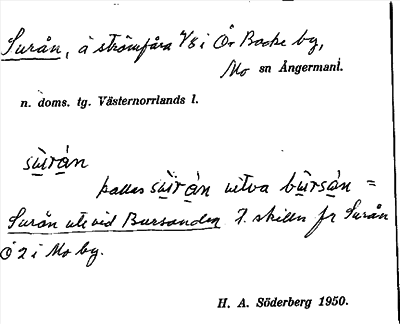 Surån, å strömfåra V8 i Ö. Backe by,
Mo sn Ångermanl.
n. doms. tg. Västernorrlands l.
sùrán
kallas sùrán utva bùrsán =
Surån ute vid Bursanden t. skilln fr Surån
Ö 2 i Mo by.
H. A. Söderberg 1950.